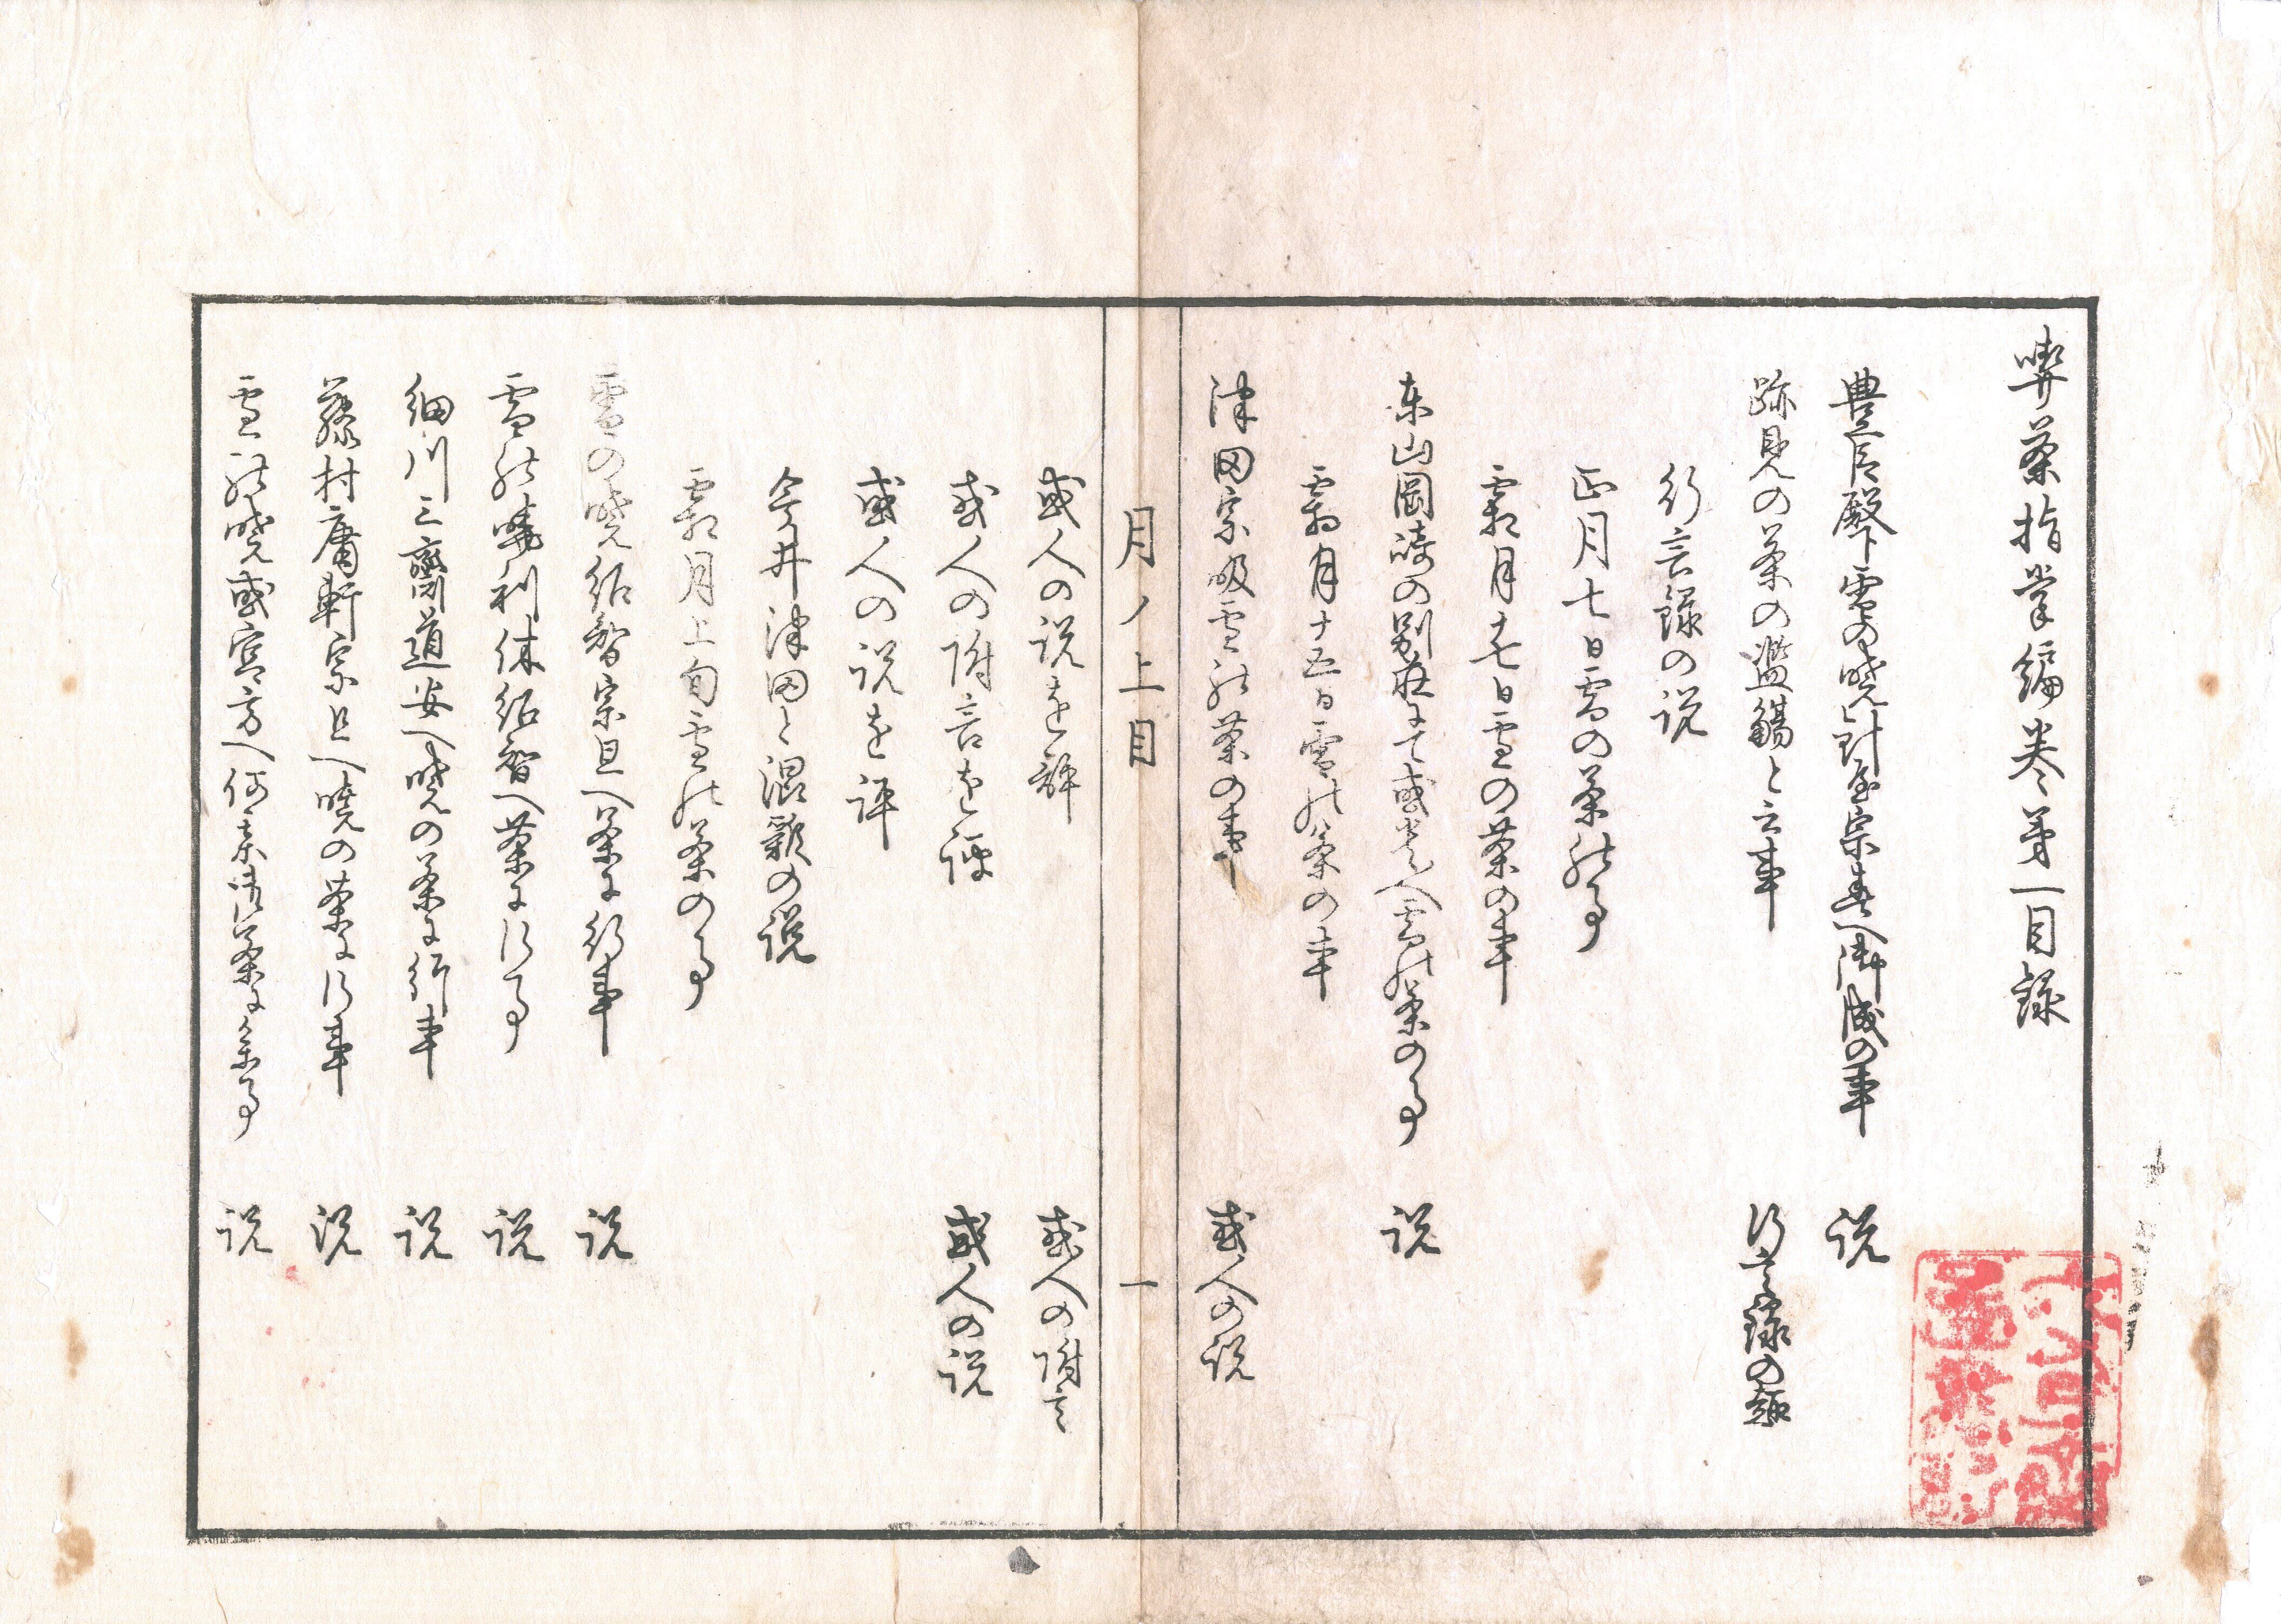 喫茶指掌編巻第一目録
豊臣殿下雪の暁針屋宗春へ御成の事 説
跡見の茶の濫觴と云事 行言録の趣
行言録の説
正月七日雪の茶の事
霜月十七日雪の茶の事
東山岡崎の別荘にて或老人雪の茶の事 説
霜月十五日雪の茶の事
津田宗及雪の茶の事 或人の説
月ノ上目 一
或人の説を辨 或人の附言
或人の附言を評 或人の説
或人の説を評
今井津田と混雑の説
霜月上旬雪の茶の事
雪の暁紹智宗旦へ茶に行事 説
雪の暁利休紹智へ茶に行事 説
細川三齋道安へ暁の茶に行事 説
藤村庸軒宗旦へ暁の茶に行事 説
雪の暁或宮方へ何某侯茶に参事 説